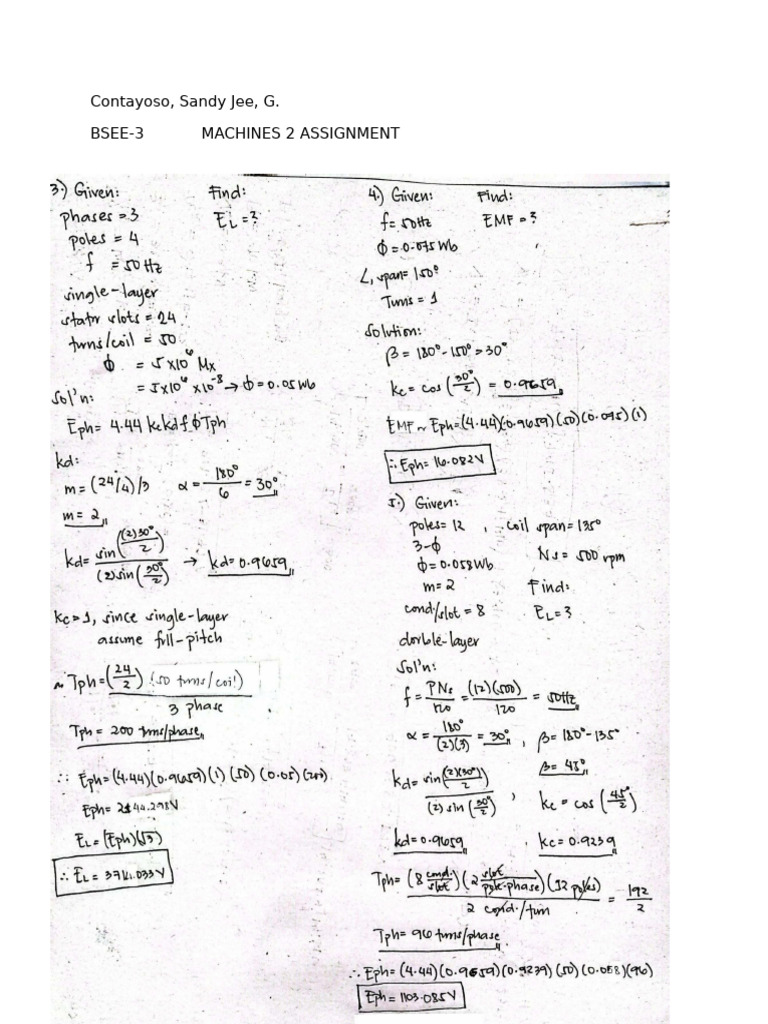 Contayoso, Sandy Jee, G.
BSEE-3 MACHINES 2 ASSIGNMENT
3.) Given: Find:
phases = 3 EL = ?
poles = 4
f = 50 Hz
single-layer
stator slots = 24
turns/coil = 50
ϕ = 5 x10⁶ Mx
= 5x10⁶ x10⁻⁸ → ϕ = 0.05 Wb
Sol'n:
Eph = 4.44 kc kd f ϕ Tph
kd:
m = (24/4)/3 α = 180°/6 = 30°
m = 2
kd = sin((2)30°/2) / (2) sin(30°/2) → kd = 0.9659
kc = 1, since single-layer
assume full-pitch
~ Tph = (24/2) (50 turns/coil) / 3 phase
Tph = 200 turns/phase
∴ Eph = (4.44)(0.9659)(1)(50)(0.05)(200)
EL = (Eph)(√3)
4.) Given: Find:
f = 50Hz EMF = ?
ϕ = 0.075 Wb
∠, span = 150°
Turns = 1
Solution:
β = 180° - 150° = 30°
kc = cos (30°/2) = 0.9659
EMF ~ Eph = (4.44)(0.9659)(50)(0.075)(1)
∴ Eph = 16.082V
5.) Given:
poles = 12 , coil span = 135°
3-ϕ Ns = 500 rpm
ϕ = 0.058 Wb
m = 2 Find:
cond/slot = 8 EL = ?
double-layer
Sol'n:
f = PNs/120 = (12)(500)/120 = 50Hz
α = 180°/(2)(3) = 30° , β = 180° - 135°
β = 45°
kd = sin((2)(30°)/2) / (2) sin (30°/2) , kc = cos (45°/2)
kd = 0.9659 kc = 0.9239
Tph = (8 cond./slot)(2 slot/pole·phase)(12 poles) / 2 cond./turn = 192/2
Tph = 96 turns/phase
∴ Eph = (4.44)(0.9659)(0.9239)(50)(0.058)(96)
Eph = 1103.085V